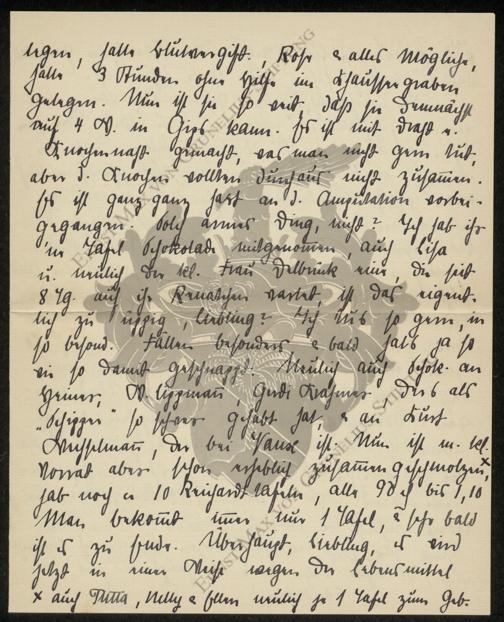 legen, hatte Blutvergift., Rose & alles Mögliche,
hatte 3 Stunden ohne Hilfe im Chausseegraben
gelegen. Nun ist sie so weit, daß sie demnächst
auf 4 W. in Gips kann. Es ist mit Draht u.
Knochennaht gemacht, was man nicht gern tut,
aber d. Knochen wollten durchaus nicht zusammen.
Es ist ganz ganz hart an d. Amputation vorbei-
gegangen. Solch armes Ding, nicht? Ich hab ihr
'ne Tafel Schokolade mitgenommen auch Lisa
u. neulich der kl. Frau Delbrück eine, die seit
8 Tg. auf ihr Renatchen wartet, ist das eigent-
lich zu üppig, Liebling? Ich tus so gern, in
so besond. Fällen besonders & bald hats ja so
wie so damit geschnappt. Neulich auch Schok. an
Heiner, W. Lippmann Gerds Krahmer, ders als
"Schipper" so schwer gehabt hat, & an Kurt
Wesselmann, der bei Hause ist. Nun ist m. kl.
Vorrat aber schon erheblich zusammengeschmolzen, x
hab noch c 10 Reichardttafeln, alle 90 d bis 1,10
Man bekomt imer nur 1 Tafel, & sehr bald
ist es zu Ende. Überhaupt, Liebling, es wird
jetzt in einer Weise wegen der Lebensmittel
x auch Tutta, Nelly & Ellen neulich je 1 Tafel zum Geb.
Ernst Max von Grunelius-Stiftung